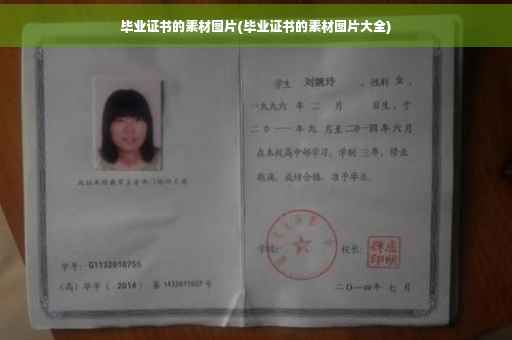 毕业证书的素材图片(毕业证书的素材图片大全)
学生 刘婉玲 ，性别 女 ，
一九九六 年 二 月 日生，于
二〇一一 年 九 月至 二〇一四 年 六 月
在本校高中部学习，学制 三 年，修业
期满，成绩合格，准予毕业。
学号： G1132010755
学校： 校长：
(高) 毕字 ( 2014 ) 第 1432011027 号
二〇一四年 七 月